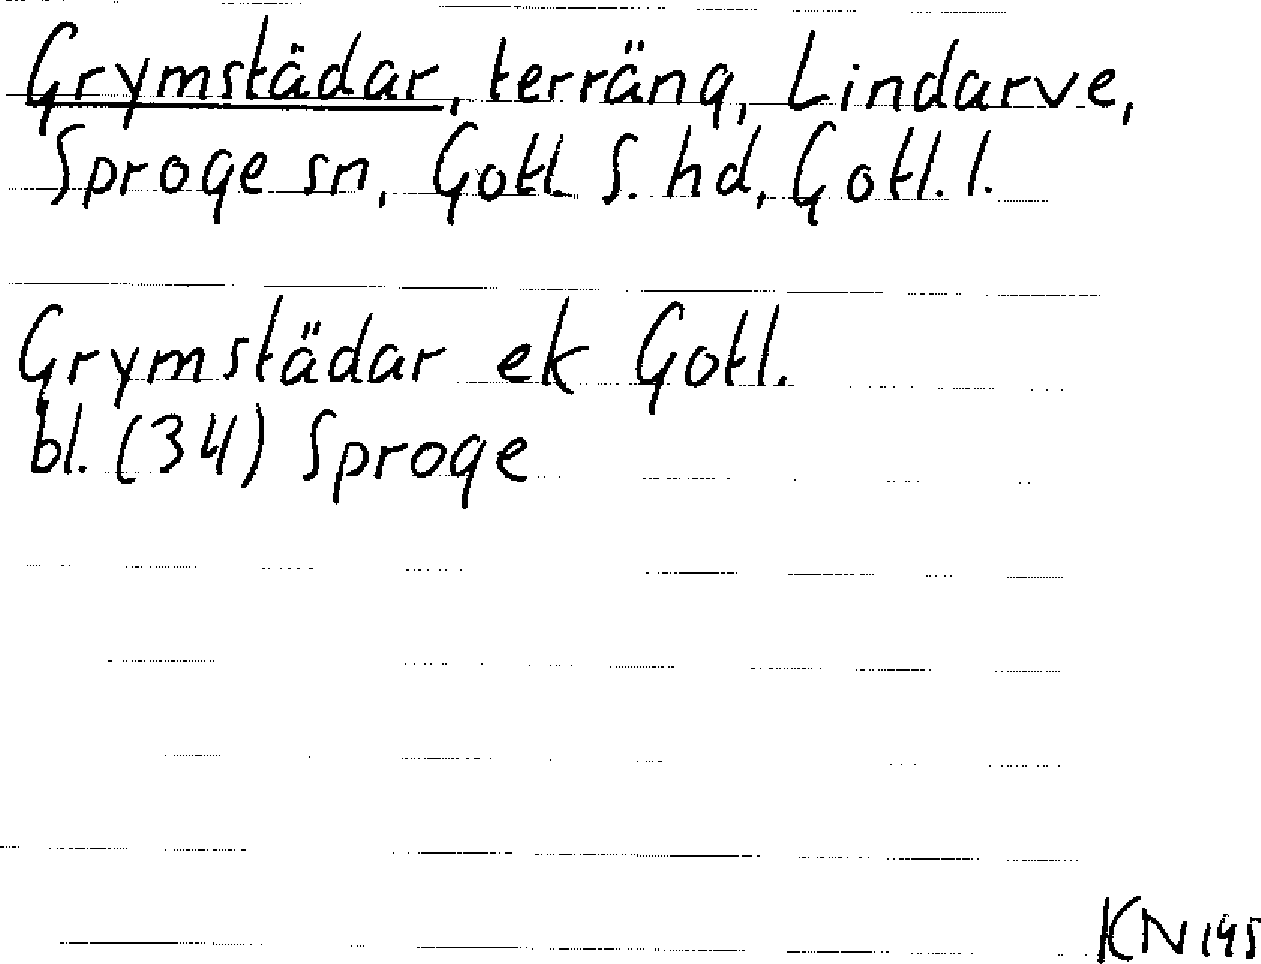 Grymstädar, terräng, Lindarve,
Sproge sn, Gotl S. hd, Gotl. l.
Grymstädar ek Gotl.
bl. (34) Sproge
KN 145